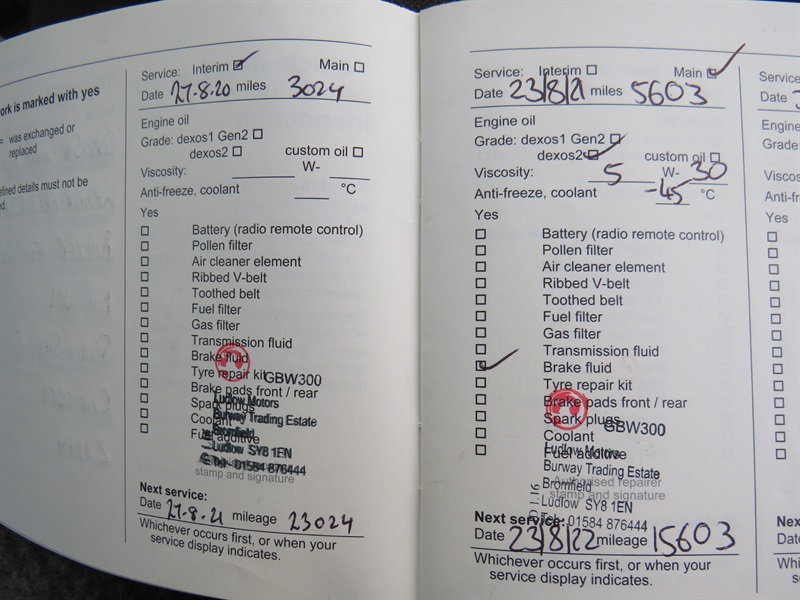 ork is marked with yes
= was exchanged or
replaced
efined details must not be
d.
Service: Interim ☑ Main ☐
Date 27.8.20 miles 3024
Engine oil
Grade: dexos1 Gen2 ☐
dexos2 ☐ custom oil ☐
Viscosity: ____ W- ____
Anti-freeze, coolant ____ °C
Yes
☐ Battery (radio remote control)
☐ Pollen filter
☐ Air cleaner element
☐ Ribbed V-belt
☐ Toothed belt
☐ Fuel filter
☐ Gas filter
☐ Transmission fluid
☐ Brake fluid
☐ Tyre repair kit
☐ Brake pads front / rear
☐ Spark plugs
☐ Coolant
☐ Fuel additive
GBW300
Ludlow Motors
Burway Trading Estate
Bromfield
Ludlow SY8 1EN
Tel: 01584 876444
stamp and signature
Next service:
Date 27.8.21 mileage 23024
Whichever occurs first, or when your
service display indicates.
Service: Interim ☐ Main ☑
Date 23/8/21 miles 5603
Engine oil
Grade: dexos1 Gen2 ☐
dexos2 ☑ custom oil ☐
Viscosity: 5 W- 30
Anti-freeze, coolant -45 °C
Yes
☐ Battery (radio remote control)
☐ Pollen filter
☐ Air cleaner element
☐ Ribbed V-belt
☐ Toothed belt
☐ Fuel filter
☐ Gas filter
☐ Transmission fluid
☑ Brake fluid
☐ Tyre repair kit
☐ Brake pads front / rear
☐ Spark plugs
☐ Coolant
☐ Fuel additive
GBW300
Ludlow Motors
Burway Trading Estate
Bromfield
Ludlow SY8 1EN
Tel: 01584 876444
Authorised repairer
stamp and signature
Next service:
Date 23/8/22 mileage 15603
Whichever occurs first, or when your
service display indicates.
Service
Date
Engine
Grade:
Viscos
Anti-f
Yes
Nex
Dat
Whi